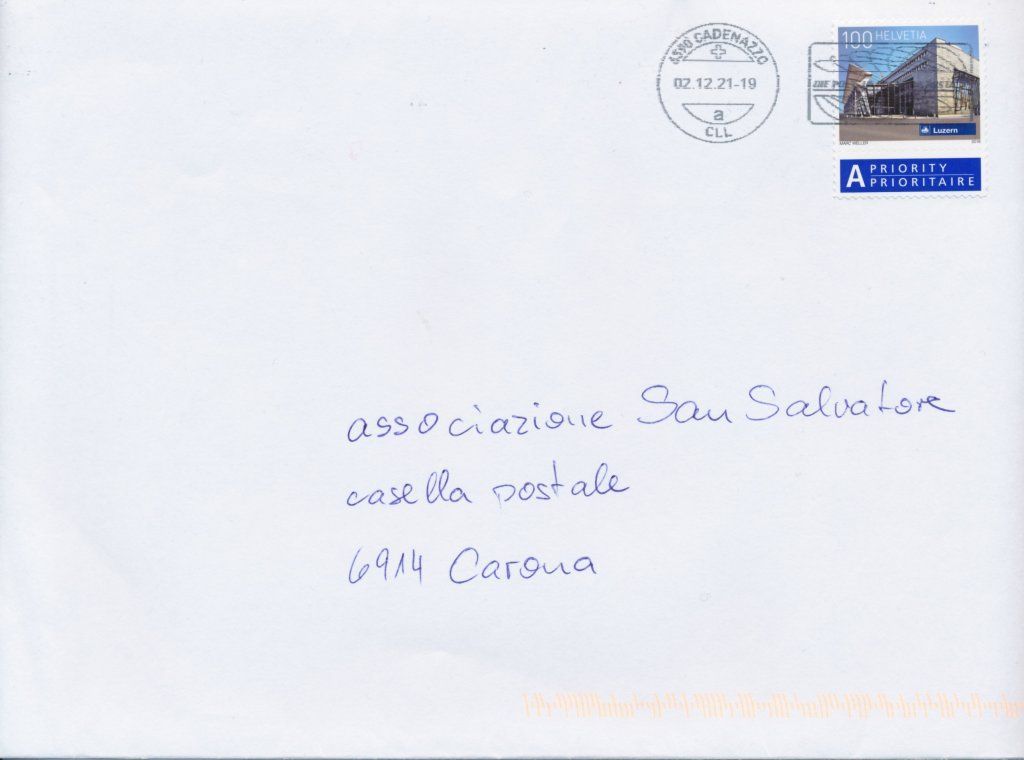 6590 CADENAZZO
02.12.21-19
a
CLL
100 HELVETIA
Luzern
MARC WELLER
A PRIORITY
PRIORITAIRE
associazione San Salvatore
casella postale
6914 Carona